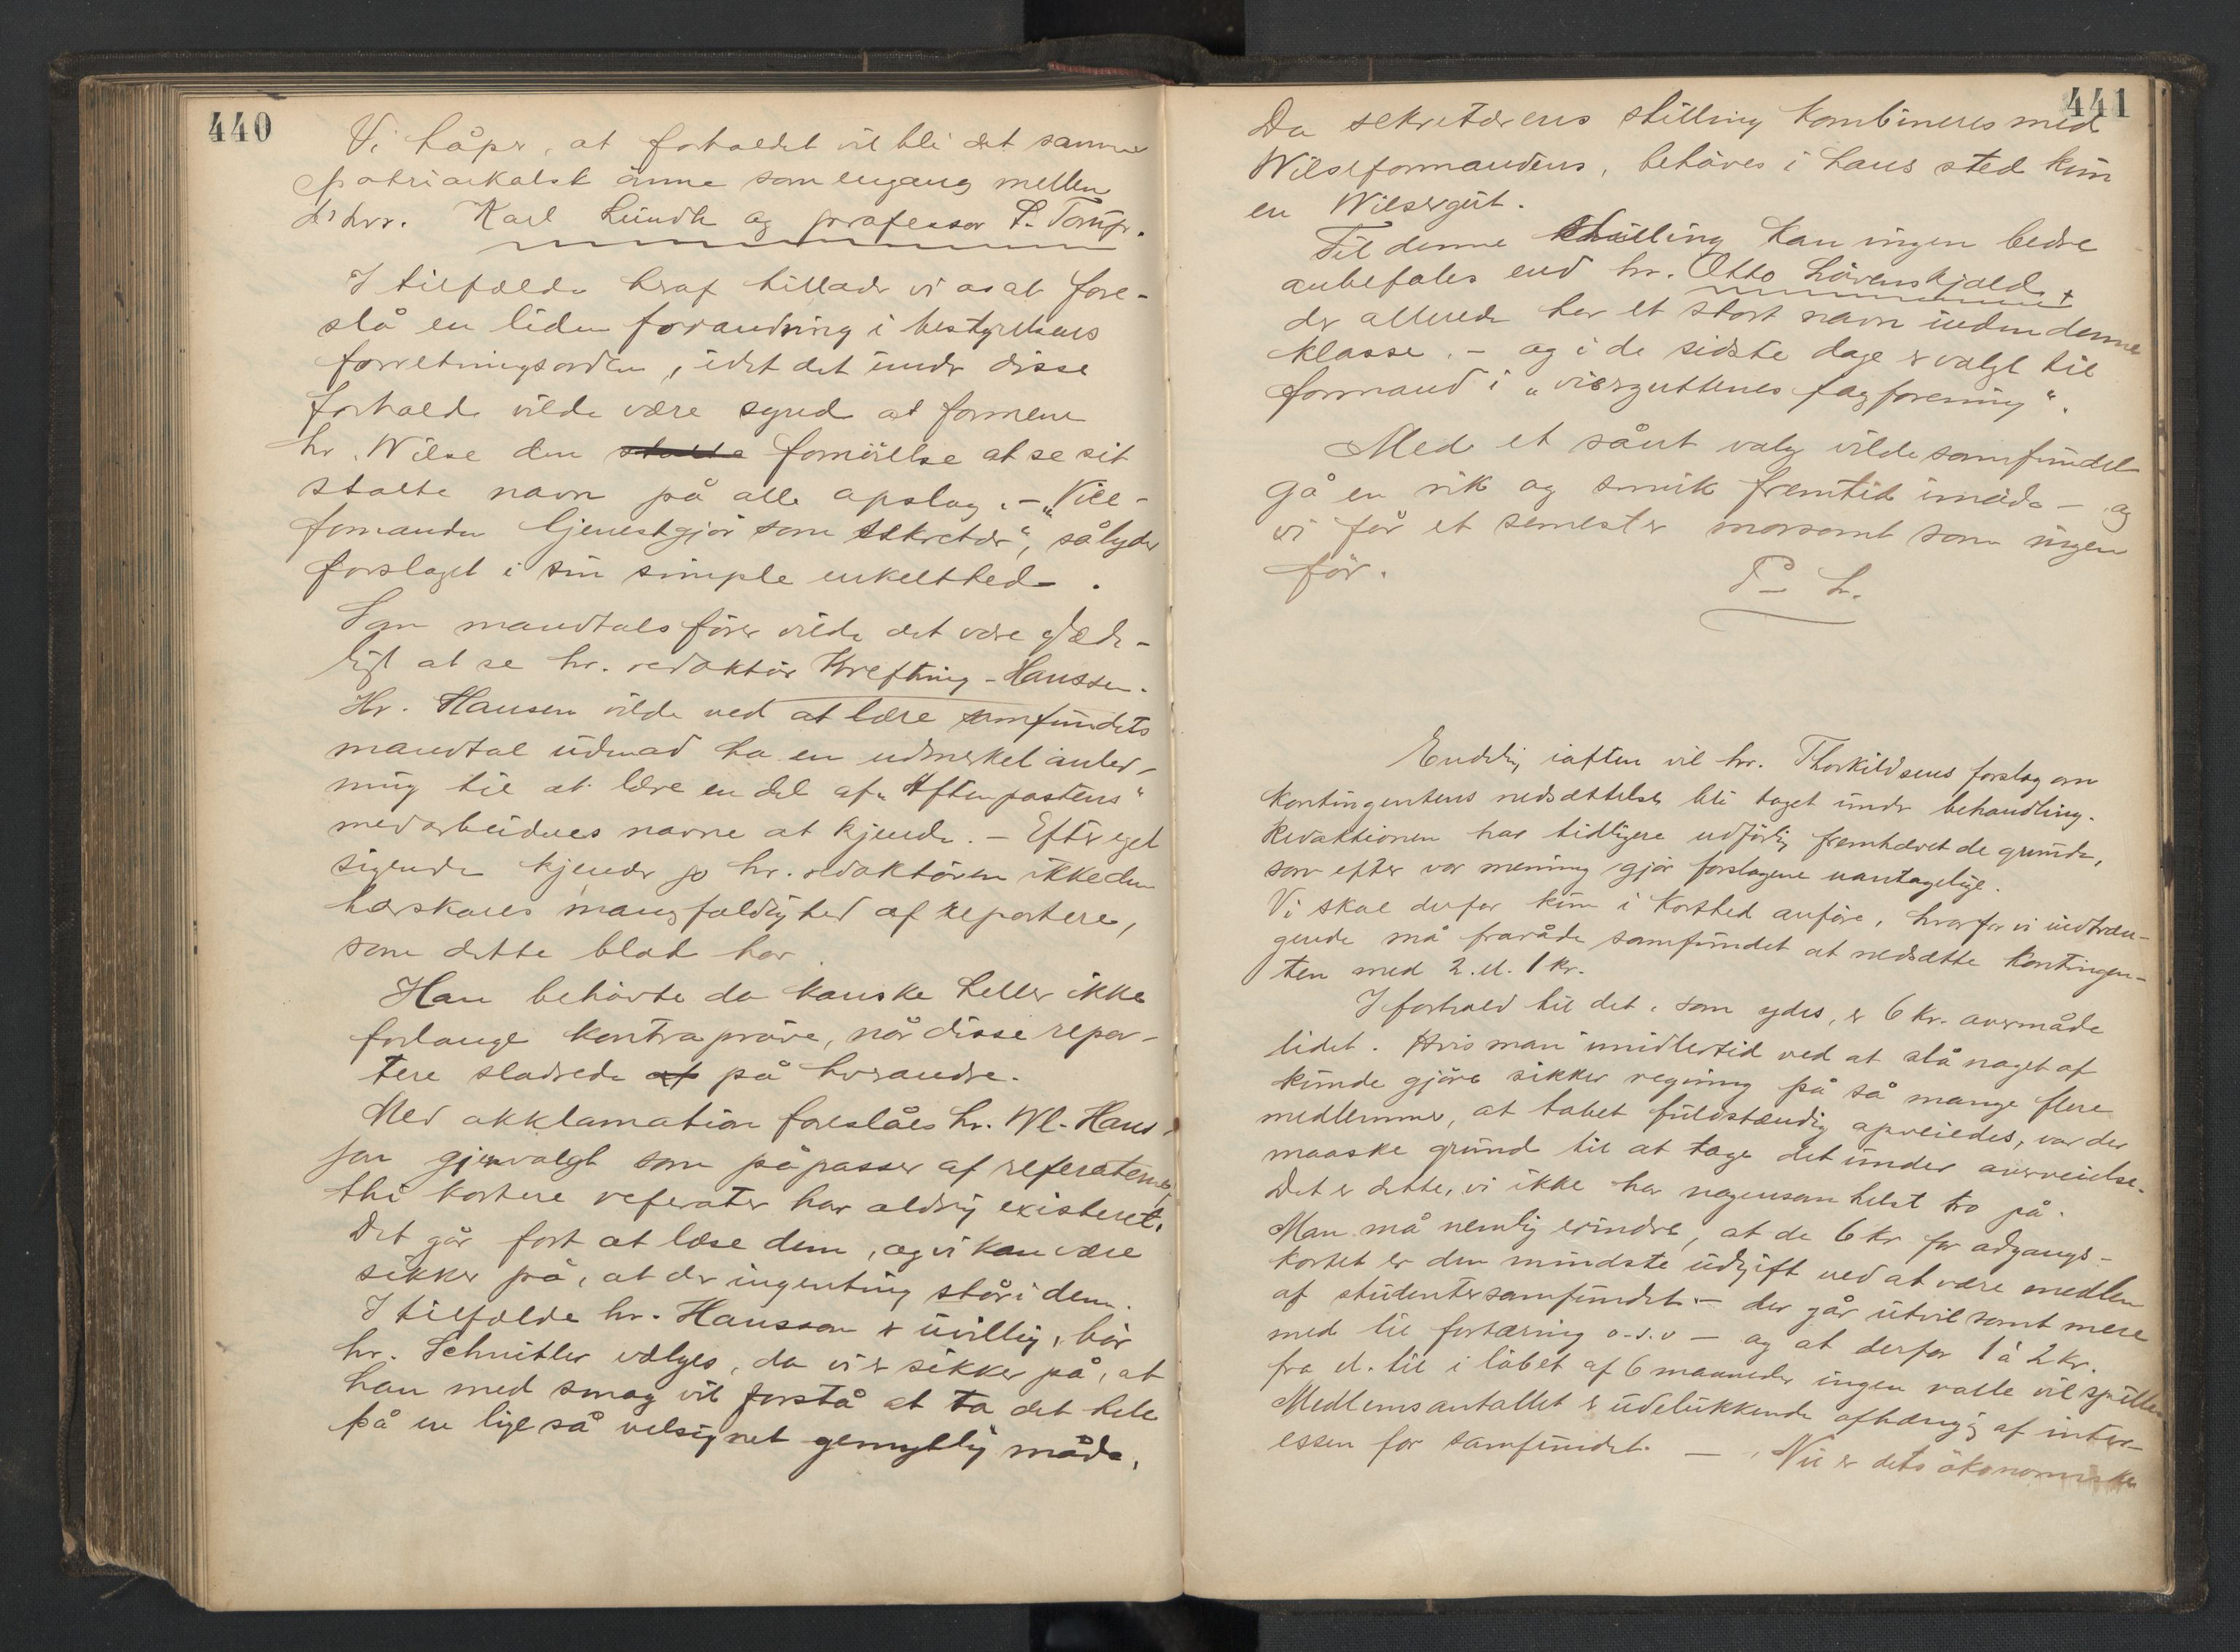 440
Vi håper, at forholdet vil bli det samme
patriarkalsk ømme som engang mellem
d'hrr. Karl Lundh og professor S. Torup.
I tilfælde heraf tillader vi os at fore-
slå en liden forandring i bestyrelsens
forretningsorden, idet det under disse
forhold vilde være synd at formene
hr. Wilse den stolte fornöielse at se sit
stolte navn på alle opslag. – "Vice-
formanden tjenestgjör som sekretær", så lyder
forslaget i sin simple enkelthed.
Som mandtalsförer vilde det være glæde-
ligt at se hr. redaktör Krefting-Hanssen.
Hr. Hansen vilde ved at lære samfundets
mandtal udenad ha en udmerket anled-
ning til at lære en del af "Aftenpostens"
medarbeideres navne at kjende. – Efter eget
sigende kjender jo hr. redaktören ikke den
hærskares mangfoldighed af reportere,
som dette blad har.
Han behövte da kanske heller ikke
forlange kontrapröve, når disse repor-
tere sladrede af på hverandre.
Med akklamation foreslåes hr. Wl. Hans-
son gjenvalgt som påpasser af referaterne,
thi kortere referater har aldrig existeret.
Det går fort at læse dem, og vi kan være
sikker på, at der ingenting står i dem.
I tilfælde hr. Hansson er uvillig, bör
hr. Schnitler vælges, da vi er sikker på, at
han med smag vil forstå at ta det hele
på en lige så velsignet gemytlig måde.
441
Da sekretærens stilling kombineres med
Wilseformandens, behöves i hans sted kun
en Wilsergut.
Til denne stilling kan ingen bedre
anbefales end hr. Otto Lövenskjold,
der allerede har et stort navn inden denne
klasse. – og i de sidste dage er valgt til
formand i "visergutternes fagforening".
Med et sånt valg vilde samfundet
gå en rik og smuk fremtid imöde – og
vi får et semester morsomt som ingen
för.
P– L.
Endelig iaften vil hr. Thorkildsens forslag om
kontingentens nedsættelse bli taget under behandling.
Redaktionen har tidligere udförlig fremhævet de grunde,
som efter vor mening gjör forslagene uantagelige.
Vi skal derfor kun i korthed anföre, hvorfor vi indtræn-
gende må fraråde samfundet at nedsætte kontingen-
ten med 2. el. 1 kr.
I forhold til det, som ydes, er 6 kr. overmåde
lidet. Hvis man imidlertid ved at slå noget af
kunde gjöre sikker regning på så mange flere
medlemmer, at tabet fuldstændig opveiedes, var der
maaske grund til at tage det under overveielse.
Det er dette, vi ikke har nogensomhelst tro på.
Man må nemlig erindre, at de 6 kr for adgangs-
kortet er den mindste udgift ved at være medlem
af studentersamfundet – der går utvilsomt mere
med til fortæring o.s.v – og at derfor 1 à 2 kr.
fra el. til i löbet af 6 maaneder ingen rolle vil spille.
Medlemsantallet er udelukkende afhængig af inter-
essen for samfundet. – Nu er dets ökonomiske